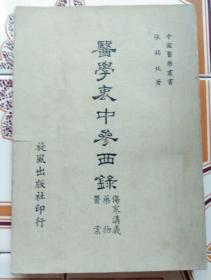 中國醫藥叢書
張錫純著
醫學衷中參西錄
傷寒講義
藥物
醫案
旋風出版社印行